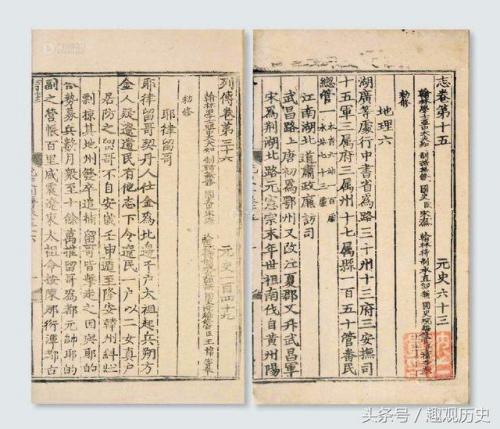 志卷第十五 元史六十三
翰林學士亞中大夫知 制誥兼修 國史臣宋濂 翰林待制承直郎 國史院編修
勑修
地理六
湖廣等處行中書省為路三十州十三府三安撫司
十五軍三屬府三屬州十七屬縣一百五十管番民
總管一
江南湖北道肅政廉訪司
武昌路上唐初為鄂州又改江夏郡又升武昌軍
宋為荆湖北路元憲宗末年世祖南伐自黄州陽
列傳卷第三十六 元史一百四十九
翰林學士亞中大夫知 制誥兼修 國史臣宋濂
勑修
耶律留哥
耶律留哥契丹人仕金為北邊千户太祖起兵朔方
金人疑遼遺民有他志下令遼民一户以二女真户
居防之留哥不自安歲壬申遁至隆安韓州糾壯
剽掠其地州發卒追捕留哥皆擊走之因與耶的
合勢募兵數月衆至十餘萬推留哥為都元帥耶的
副之營帳百里威震遼東太祖命按陳那衍渾都古
头条号 / 趣观历史